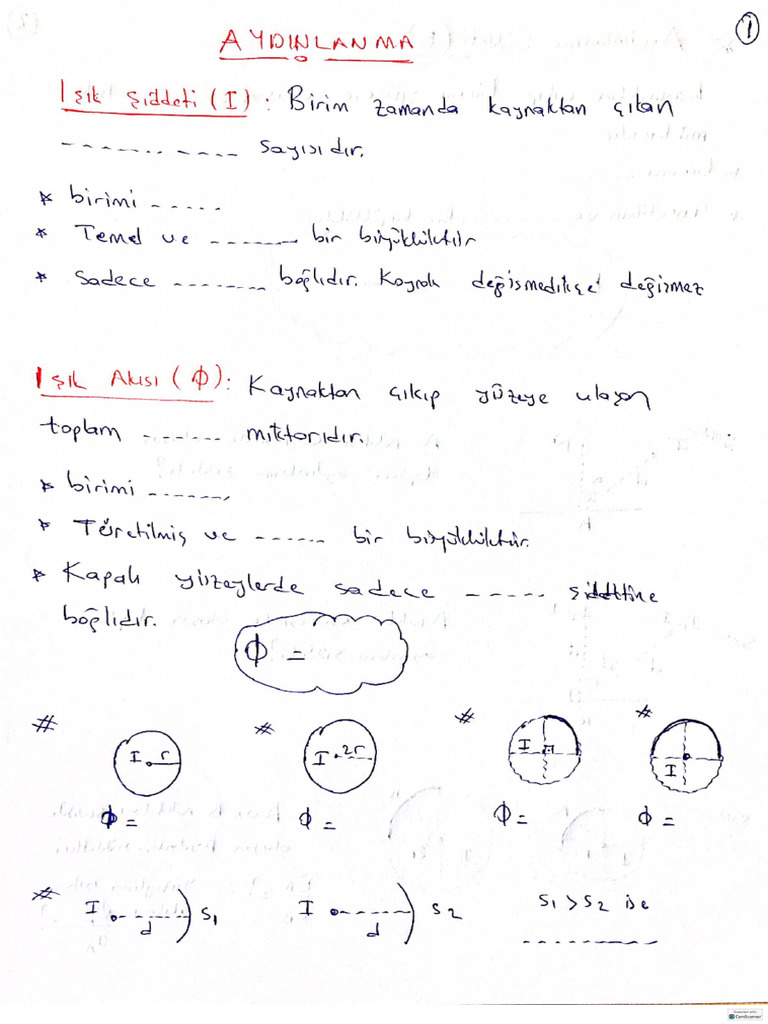 1
AYDINLANMA
Işık Şiddeti (I) : Birim zamanda kaynaktan çıkan
----------- sayısıdır.
* birimi -----
* Temel ve ------- bir büyüklüktür
* Sadece -------- bağlıdır. Kaynak değişmedikçe değişmez
Işık Akısı (Φ): Kaynaktan çıkıp yüzeye ulaşan
toplam ------ miktarıdır.
* birimi -------
* Türetilmiş ve ------ bir büyüklüktür.
* Kapalı yüzeylerde sadece ----- şiddetine
bağlıdır.
Φ =
# * # *
I r I 2r I I
Φ = Φ = Φ = Φ =
* I d S1 I d S2 S1 > S2 ise
----------
Scanned with
CamScanner